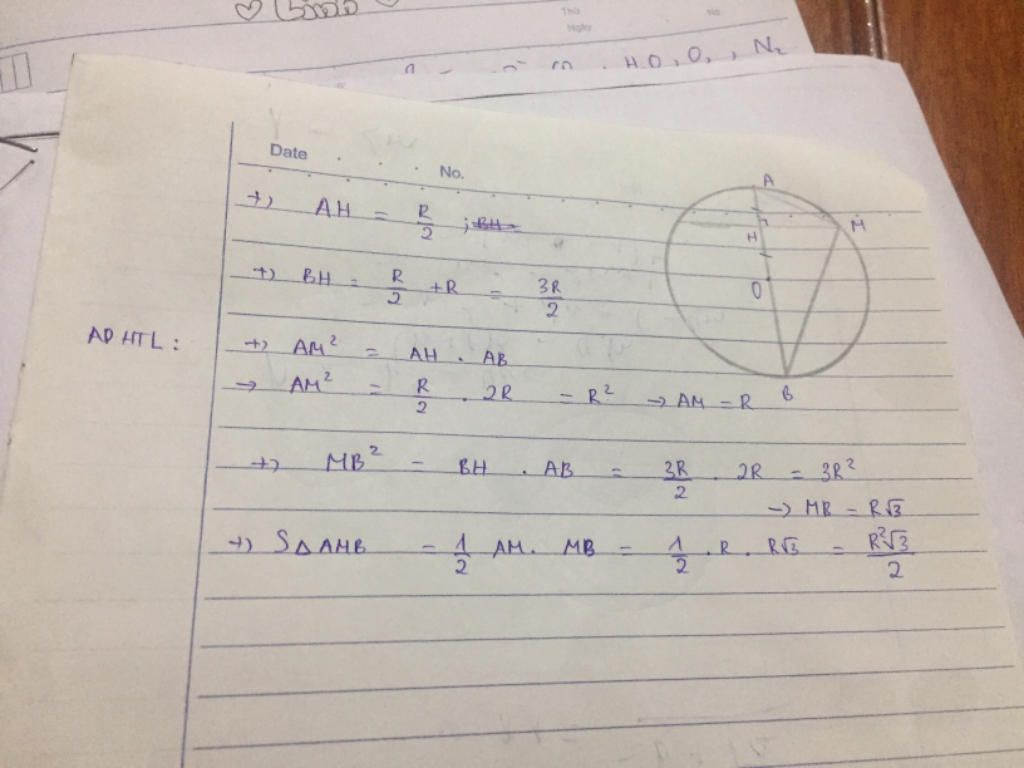 This No.
Ngày
H₂O, O₂, N₂
Date . . . No.
+) AH = R/2 ; BH =
+) BH = R/2 + R = 3R/2
AD HTL :
+) AM² = AH . AB
→ AM² = R/2 . 2R = R² → AM = R
+) MB² = BH . AB = 3R/2 . 2R = 3R²
→ MB = R√3
+) S△AMB = 1/2 AM. MB = 1/2 . R . R√3 = R²√3/2
A
M
H
O
B